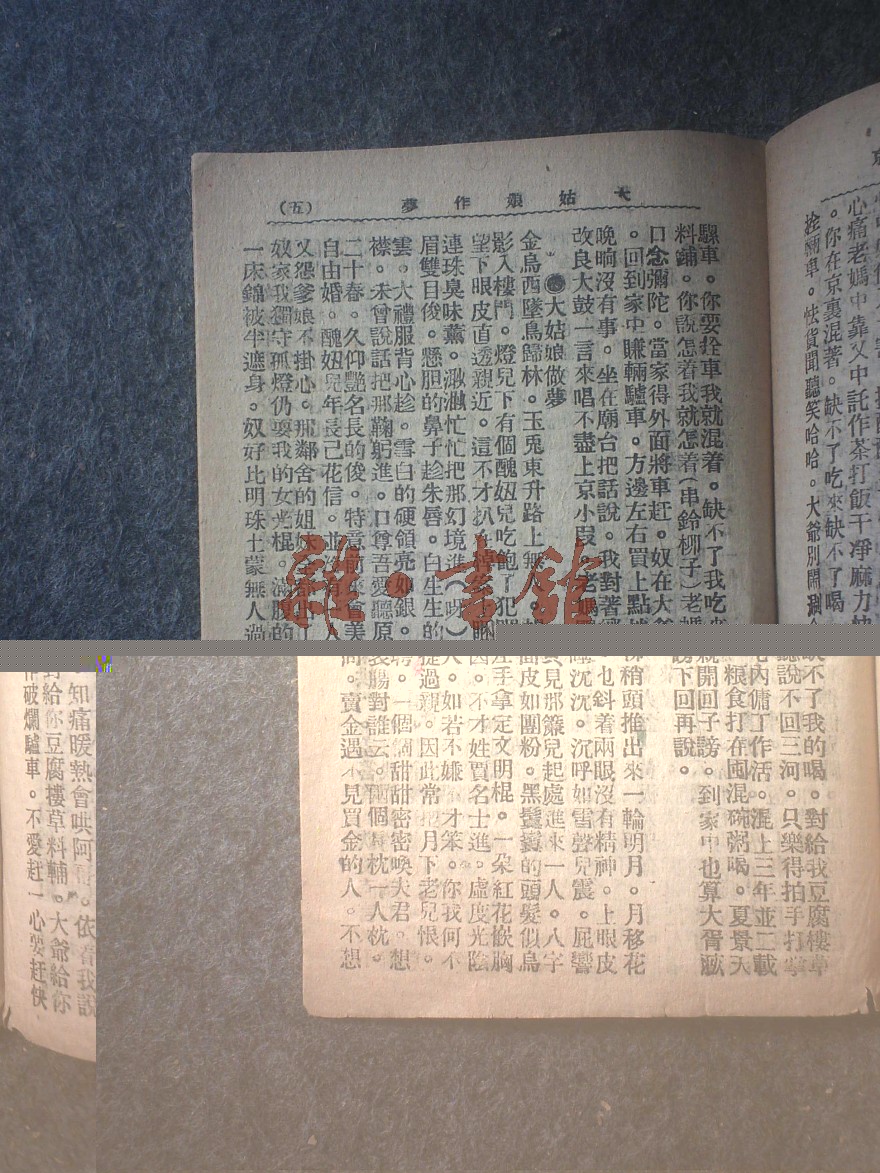 大姑娘作夢
（五）
騾車。你要拴車我就混着。缺不了我吃
料鋪。你說怎着我就怎着（串鈴柳子）老媽
口念彌陀。當家得外面將車赶。奴在大爺
。回到家中賺輛驢車。方邊左右買上點
晚晌沒有事。坐在廟台把話說。我對著
改良大鼓一言來唱不盡上京小叚。老媽
大姑娘做夢
金烏西墜鳥歸林。玉兎東升路上無人
影入樓門。燈兒下有個醜妞兒吃飽了犯
望下眼皮直透親近。這不才扒
連珠臭味薰。潊潊忙忙把那幻境進（呀）
眉雙目俊。懸胆的鼻子趁朱唇。白生生的
雲。大禮服背心趁。雪白的硬領亮如銀。
襟。未曾說話把那鞠躬進。口尊吾愛聽原
二十春。久仰艷名長的俊。特意前來會美
自由婚。醜妞兒年長已花信。並沒有
又怨爹娘不掛心。那鄰舍的姐妹
奴家我獨守孤燈仍耍我的女光棍。滿腹的
一床錦被半遮身。奴好比明珠土蒙無人過
心痛老媽中靠又中託作茶打飯干凈麻力
。你在京裏混著。缺不了吃來缺不了喝
拴輛車。怯貨聞聽笑哈哈。大爺別鬧
雜·書館
缺不了我的喝。對給我豆腐樓草
聽說不回三河。只樂得拍手打掌
宅內傭工作活。混上三年並二載
粮食打在囤混碗粥喝。夏景天
就開回子謗。到家中也算大胥瞅
謗下回再說。
稍頭推出來一輪明月。月移花
也斜着兩眼沒有精神。上眼皮
沉沉。沉呼如雷聲兒震。屁響
見那簾兒起處進來一人。八字
面皮如團粉。黑鬢鬢的頭髮似鳥
左手拿定文明棍。一朵紅花嵌胸
因。不才姓賈名士進。虛度光陰
人。如若不嫌不才笨。你我何不
提過親。因此常把月下老兒恨。
一個個甜甜密密喚夫君。想
衷腸對誰云。兩個長枕一人枕。
問。賣金遇不見買金的人。不想
知痛暖熱會哄阿哥。依着我說
對給你豆腐樓草料輔。大爺給你
作破爛驢車。不愛赶一心要赶快